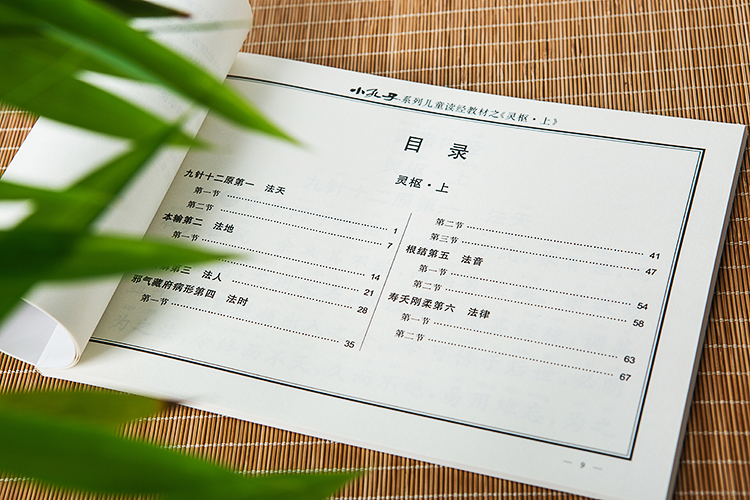 小孔子系列儿童读经教材之《灵枢·上》
目录
灵枢·上
九针十二原第一 法天
第一节 1
第二节 7
本输第二 法地
第一节 14
21
解第三 法人
28
邪气藏府病形第四 法时
第一节 35
第二节 41
第三节 47
根结第五 法音
第一节 54
第二节 58
寿夭刚柔第六 法律
第一节 63
第二节 67
— 9 —